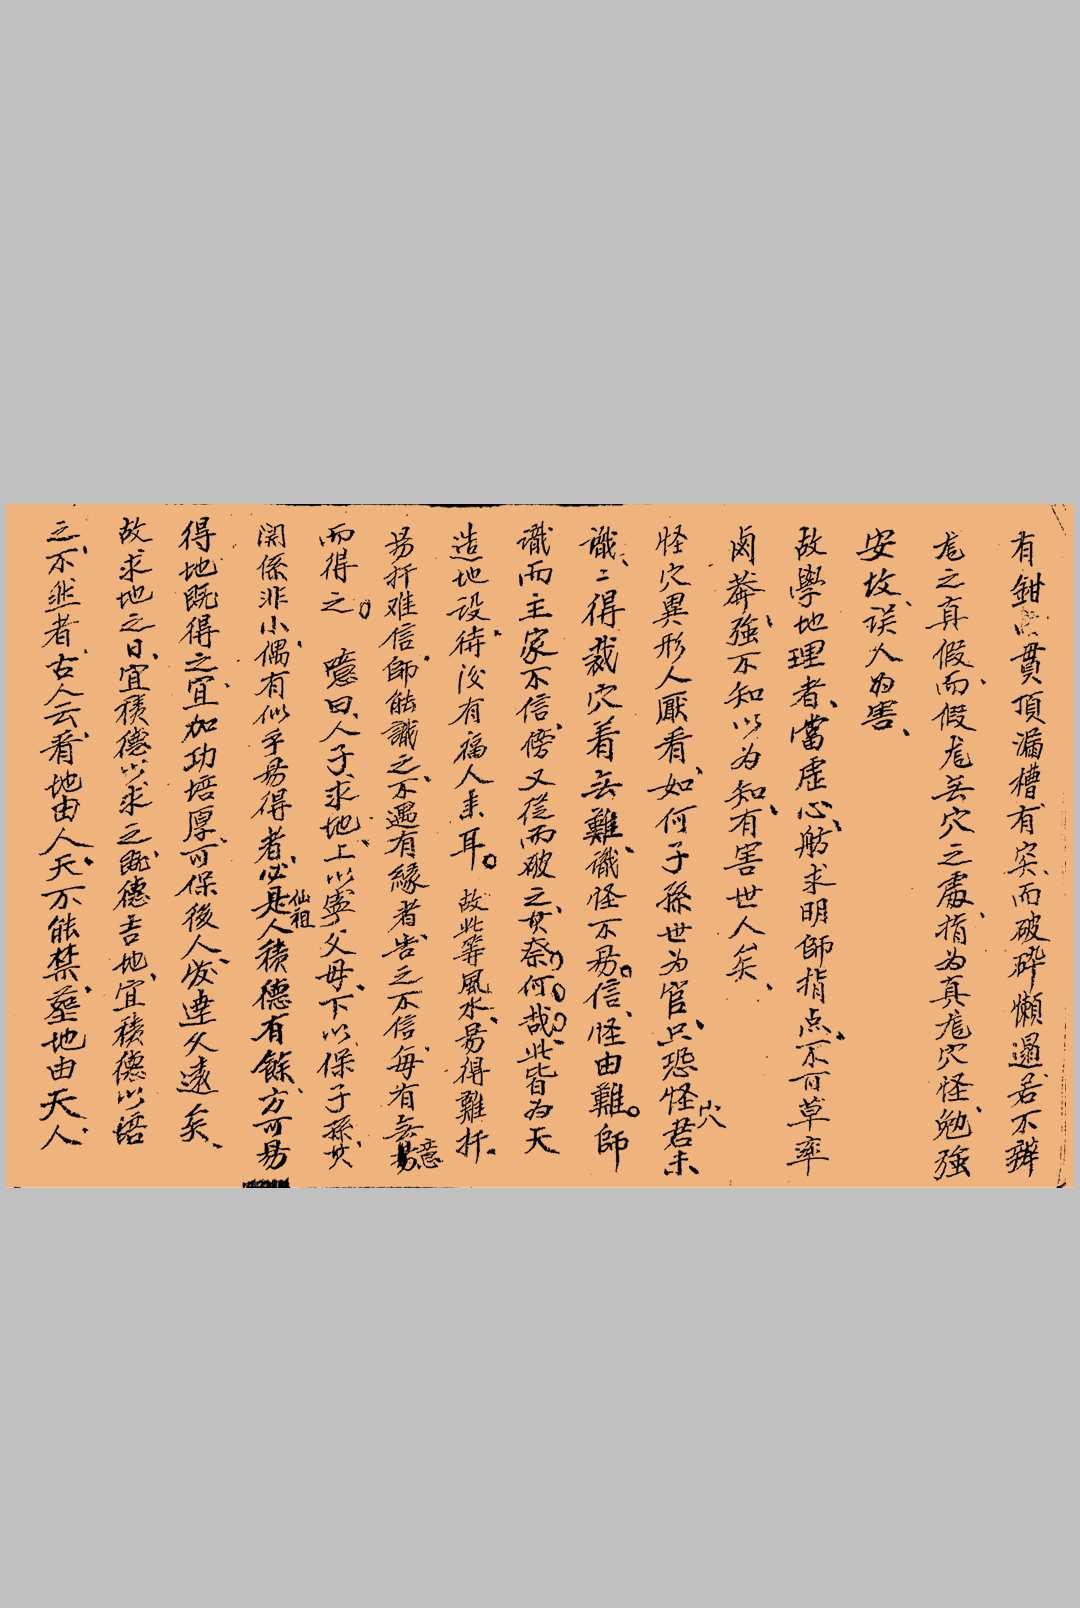 有鉗貫頂漏槽、有突而破碎懶遢、若不辨
尨之真假、而假尨無穴之處、指為真尨穴怪、勉強
安坟、误人为害、
故學地理者、當虛心、舫求明師指点、不可草率
鹵莽、強不知以為知、有害世人矣、
怪穴異形人厭看、如何子孫世为官、只恐怪穴君未
識、識得裁穴着無難、識怪不易。信怪由難。師
識而主家不信、傍又從而破之、其奈何哉、此皆为天
造地設、待後有福人来耳。故此等風水、易得難扦、
易扦难信、師能識之、不遇有緣者、告之不信、每有無意
易而得之。 噫曰、人子求地、上以塟父母、下以保子孫、其
関係非小、偶有似乎易得者、必是仙祖人積德有餘、方可易
得地、既得之、宜加功培厚、可保後人、发達久遠矣、
故求地之日、宜積德以求之、既德吉地、宜積德以培
之、不然者、古人云、看地由人、天不能禁、塟地由天、人